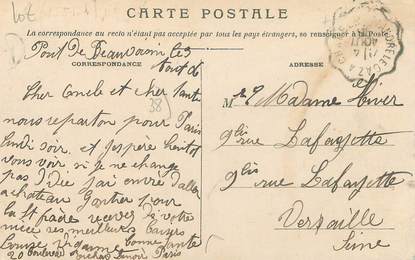 lot
CARTE POSTALE
La correspondance au recto n'étant pas acceptée par tous les pays étrangers, se renseigner à la Poste
CORRESPONDANCE
ADRESSE
Pont de Beauvoisin le 3
Aout 06
Cher Oncle et cher tante
38
nous reparton pour Paris
lundi soir, et j'espère
vous voir si je ne change
pas d'idée j'ai envie d'aller
a chateau Gontier pour
la St recevez de votre
nièce ses meilleurs baisers
Louise bonne santé
20 boulevard Richard Lenoir Paris
Madame
9 bis rue Lafayette
9 bis rue Lafayette
Versaille
Seine